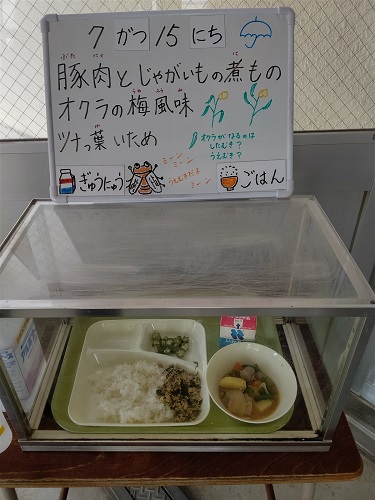 7 がつ 15 にち
豚肉とじゃがいもの煮もの
オクラの梅風味
ツナっ葉いため
オクラがなるのは
したむき?
うえむき?
ミーン
ミーン
うえむきだよ
ミーン
ぎゅうにゅう
ごはん